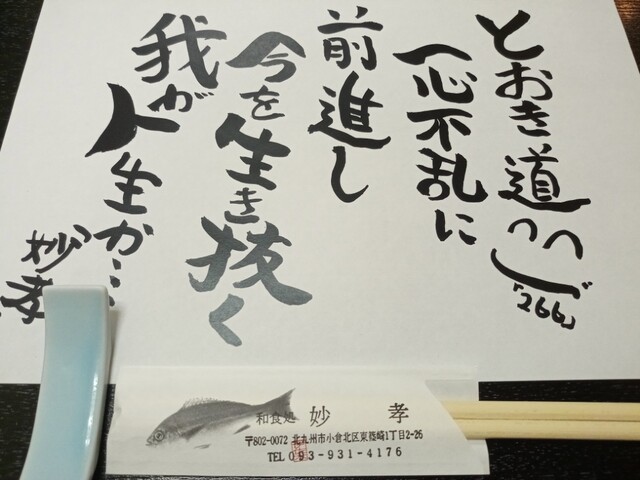 とおき道
「266」
一心不乱に
前進し
今を生き抜く
我が人生か…
妙孝
和食処 妙 孝
〒802-0072 北九州市小倉北区東篠崎1丁目2-26
TEL 093-931-4176